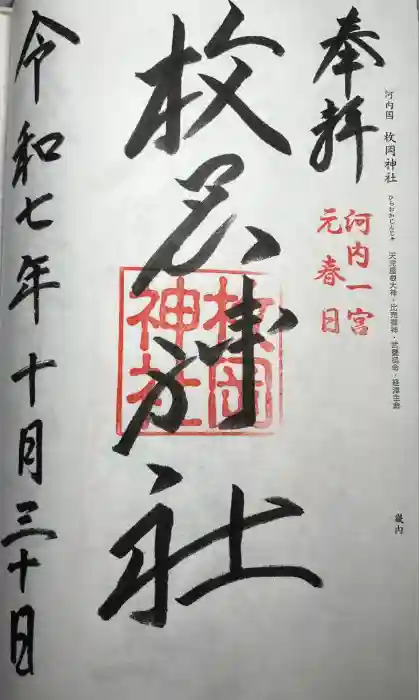 河内国 枚岡神社
ひらおかじんじゃ
天児屋根大神・比売御神・武甕槌命・経津主命
畿内
奉拝
河内一宮
元春日
枚岡神社
枚岡
神社
令和七年十月三十日